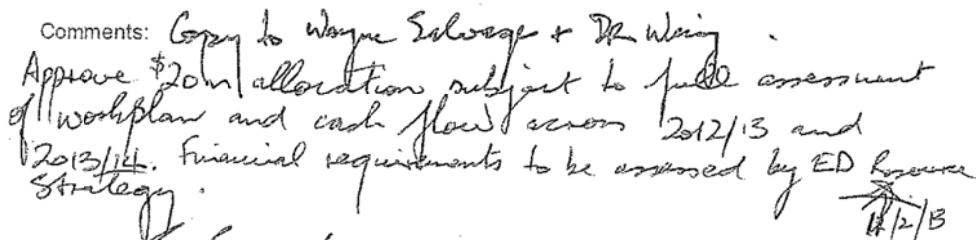 Comments: Copy to Wayne Salvage + DR Wring.
Approve $20m allocation subject to full assessment
of workplan and cash flow across 2012/13 and
2013/14. Financial requirements to be assessed by ED Resource
Strategy.
/2/13